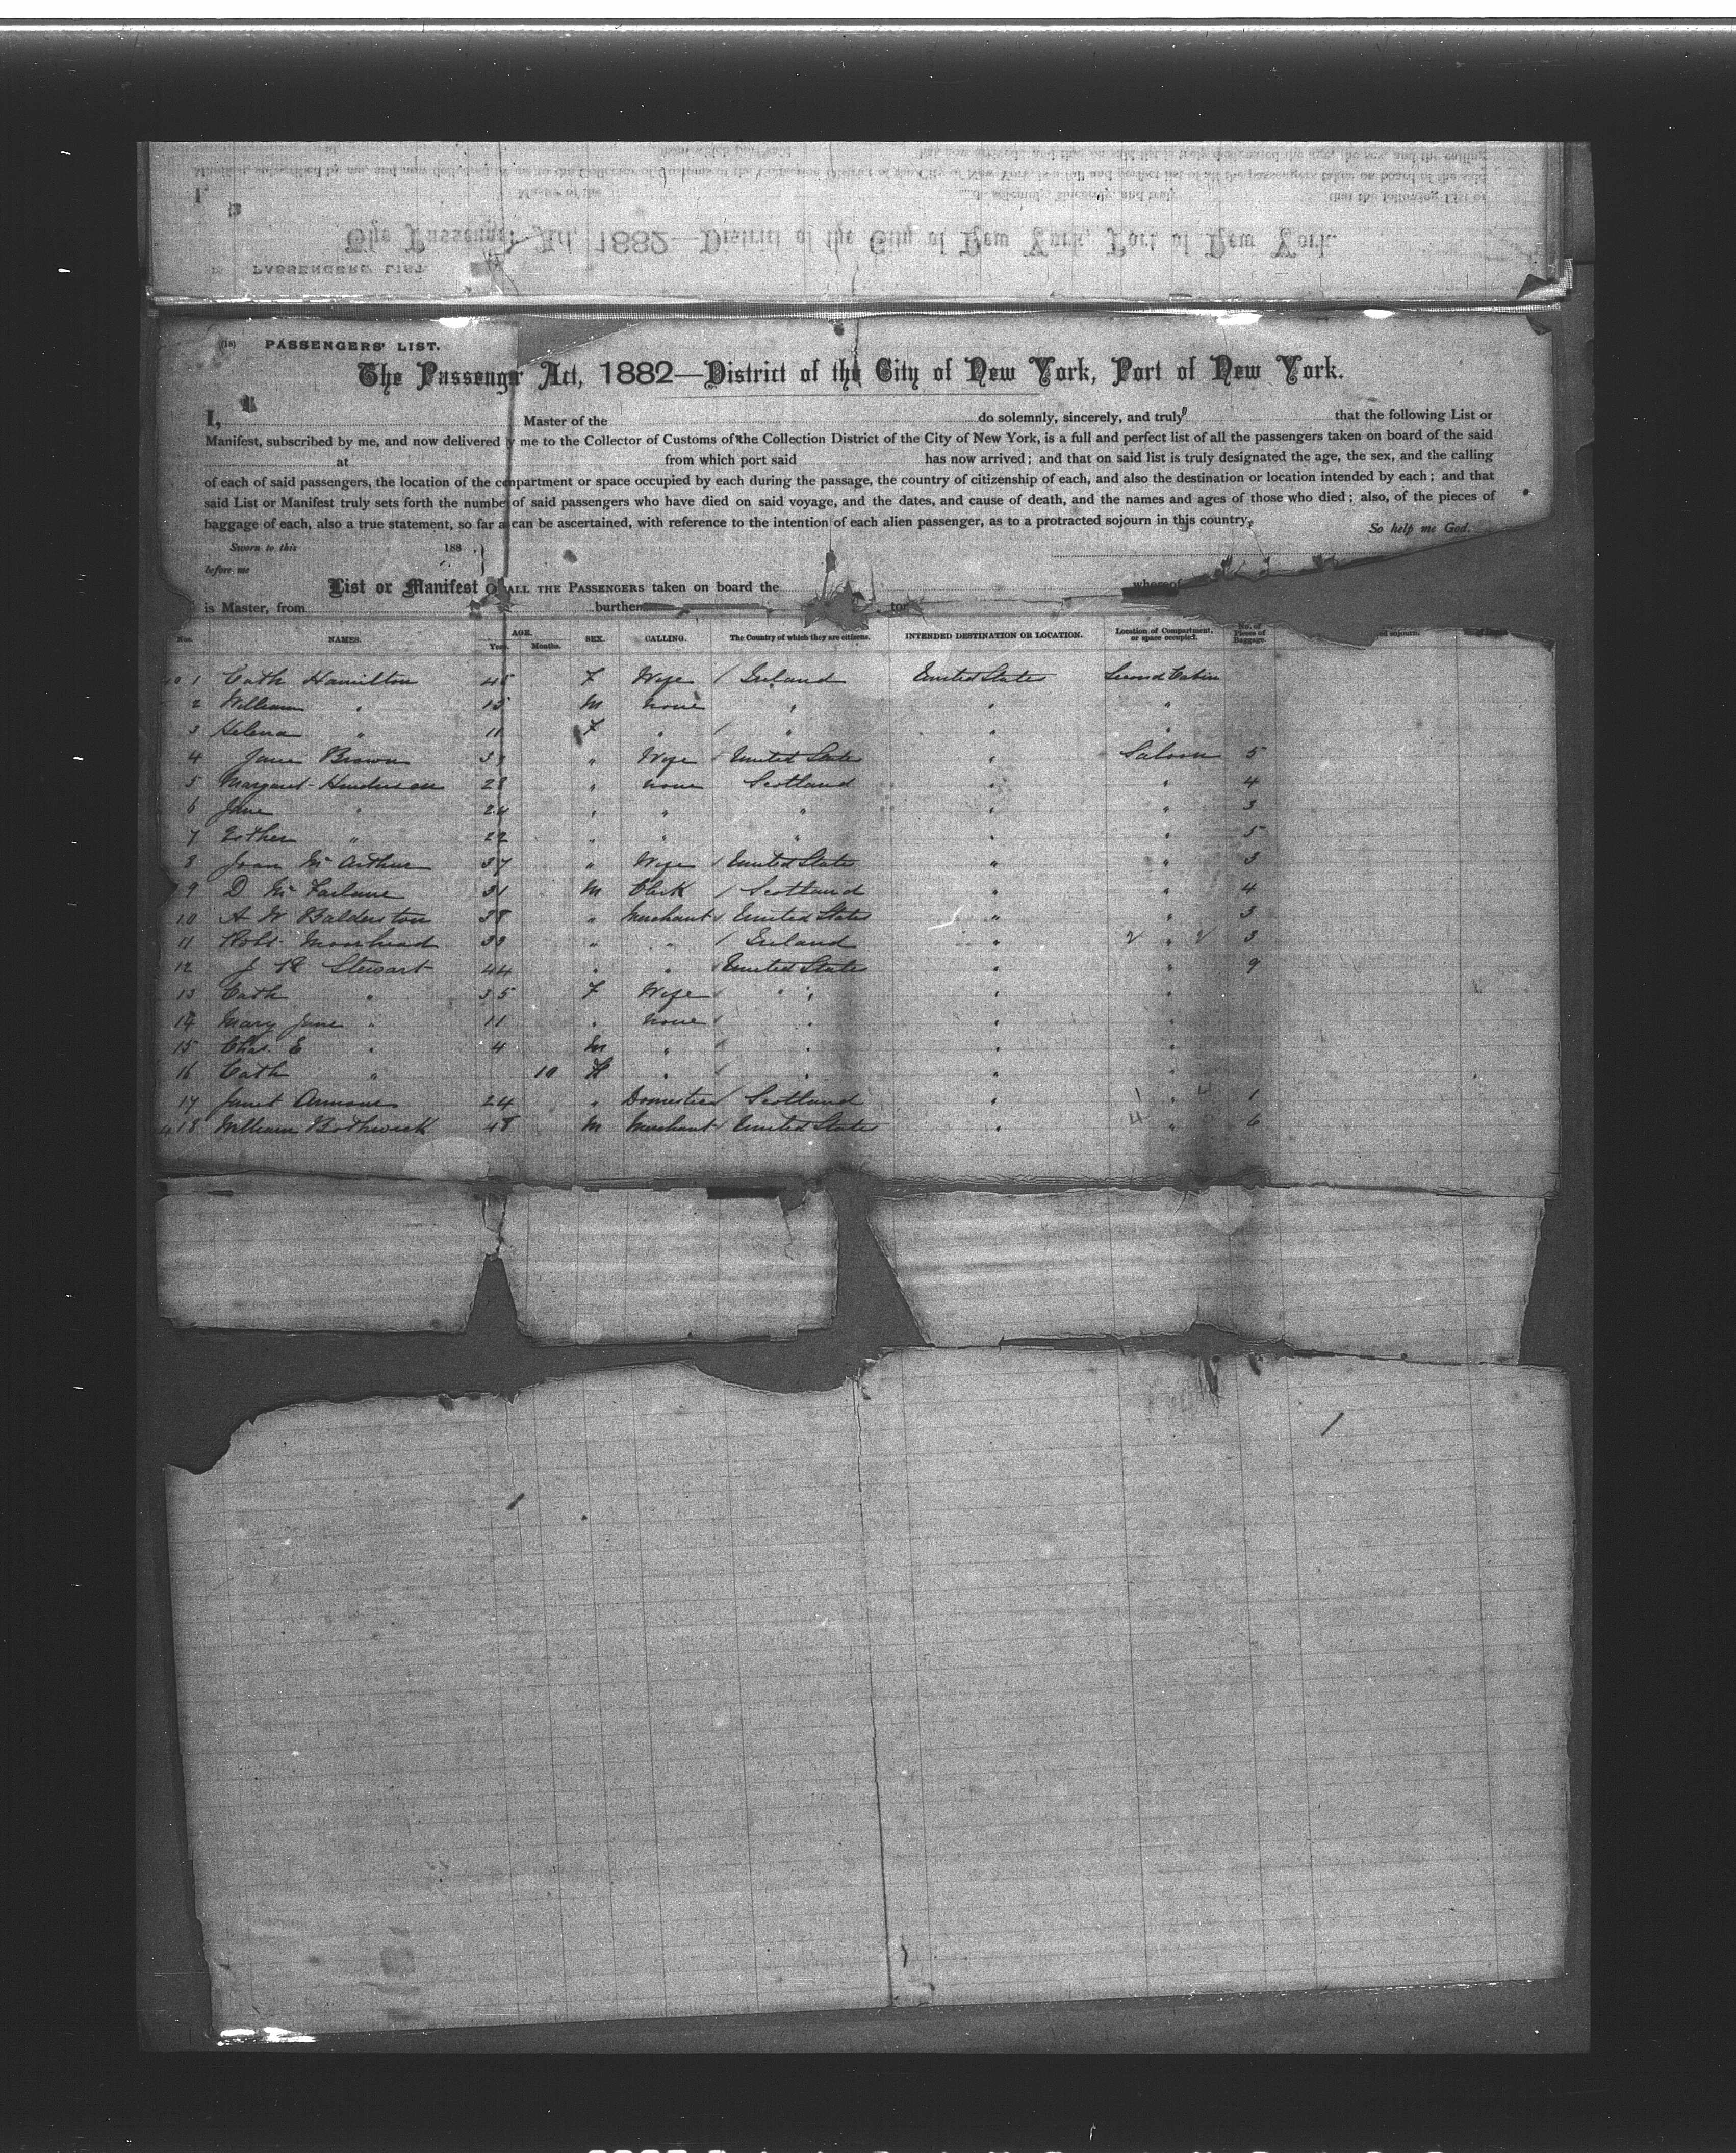 PASSENGERS' LIST.
The Passenger Act, 1882—District of the City of New York, Port of New York.
I, Master of the do solemnly, sincerely, and truly that the following List or
Manifest, subscribed by me, and now delivered by me to the Collector of Customs of the Collection District of the City of New York, is a full and perfect list of all the passengers taken on board of the said
at from which port said has now arrived; and that on said list is truly designated the age, the sex, and the calling
of each of said passengers, the location of the compartment or space occupied by each during the passage, the country of citizenship of each, and also the destination or location intended by each; and that
said List or Manifest truly sets forth the number of said passengers who have died on said voyage, and the dates, and cause of death, and the names and ages of those who died; also, of the pieces of
baggage of each, also a true statement, so far as can be ascertained, with reference to the intention of each alien passenger, as to a protracted sojourn in this country. So help me God.
Sworn to this 188
before me
List or Manifest OF ALL THE PASSENGERS taken on board the whereof
is Master, from burthen tons
Nos. NAMES. AGE. Years. Months. SEX. CALLING. The Country of which they are citizens. INTENDED DESTINATION OR LOCATION. Location of Compartment, or space occupied. No. of Pieces of Baggage. sojourn.
1 Cath Hamilton 45 F Wife Ireland United States Second Cabin
2 William " 15 M none " " "
3 Helena " 11 F " " " "
4 Jane Brown 3 " Wife United States " Saloon 5
5 Margaret Henderson 28 " none Scotland " " 4
6 Jane " 24 " " " " " 3
7 Esther " 22 " " " " " 5
8 Joan McArthur 37 " Wife United States " " 3
9 D McFarlane 31 M Clerk Scotland " " 4
10 A W Balderston 38 " Merchant United States " " 3
11 Robt Moorhead 33 " " Ireland " " 3
12 J Stewart 44 " " United States " " 9
13 Cath " 35 F Wife " " " "
14 Mary Jane " 11 " none " " "
15 Chas. E " 4 M " " " "
16 Cath " 10 F " " " "
17 Janet 24 " Domestic Scotland " " 1
18 William Bothwick 48 M Merchant United States " " 6